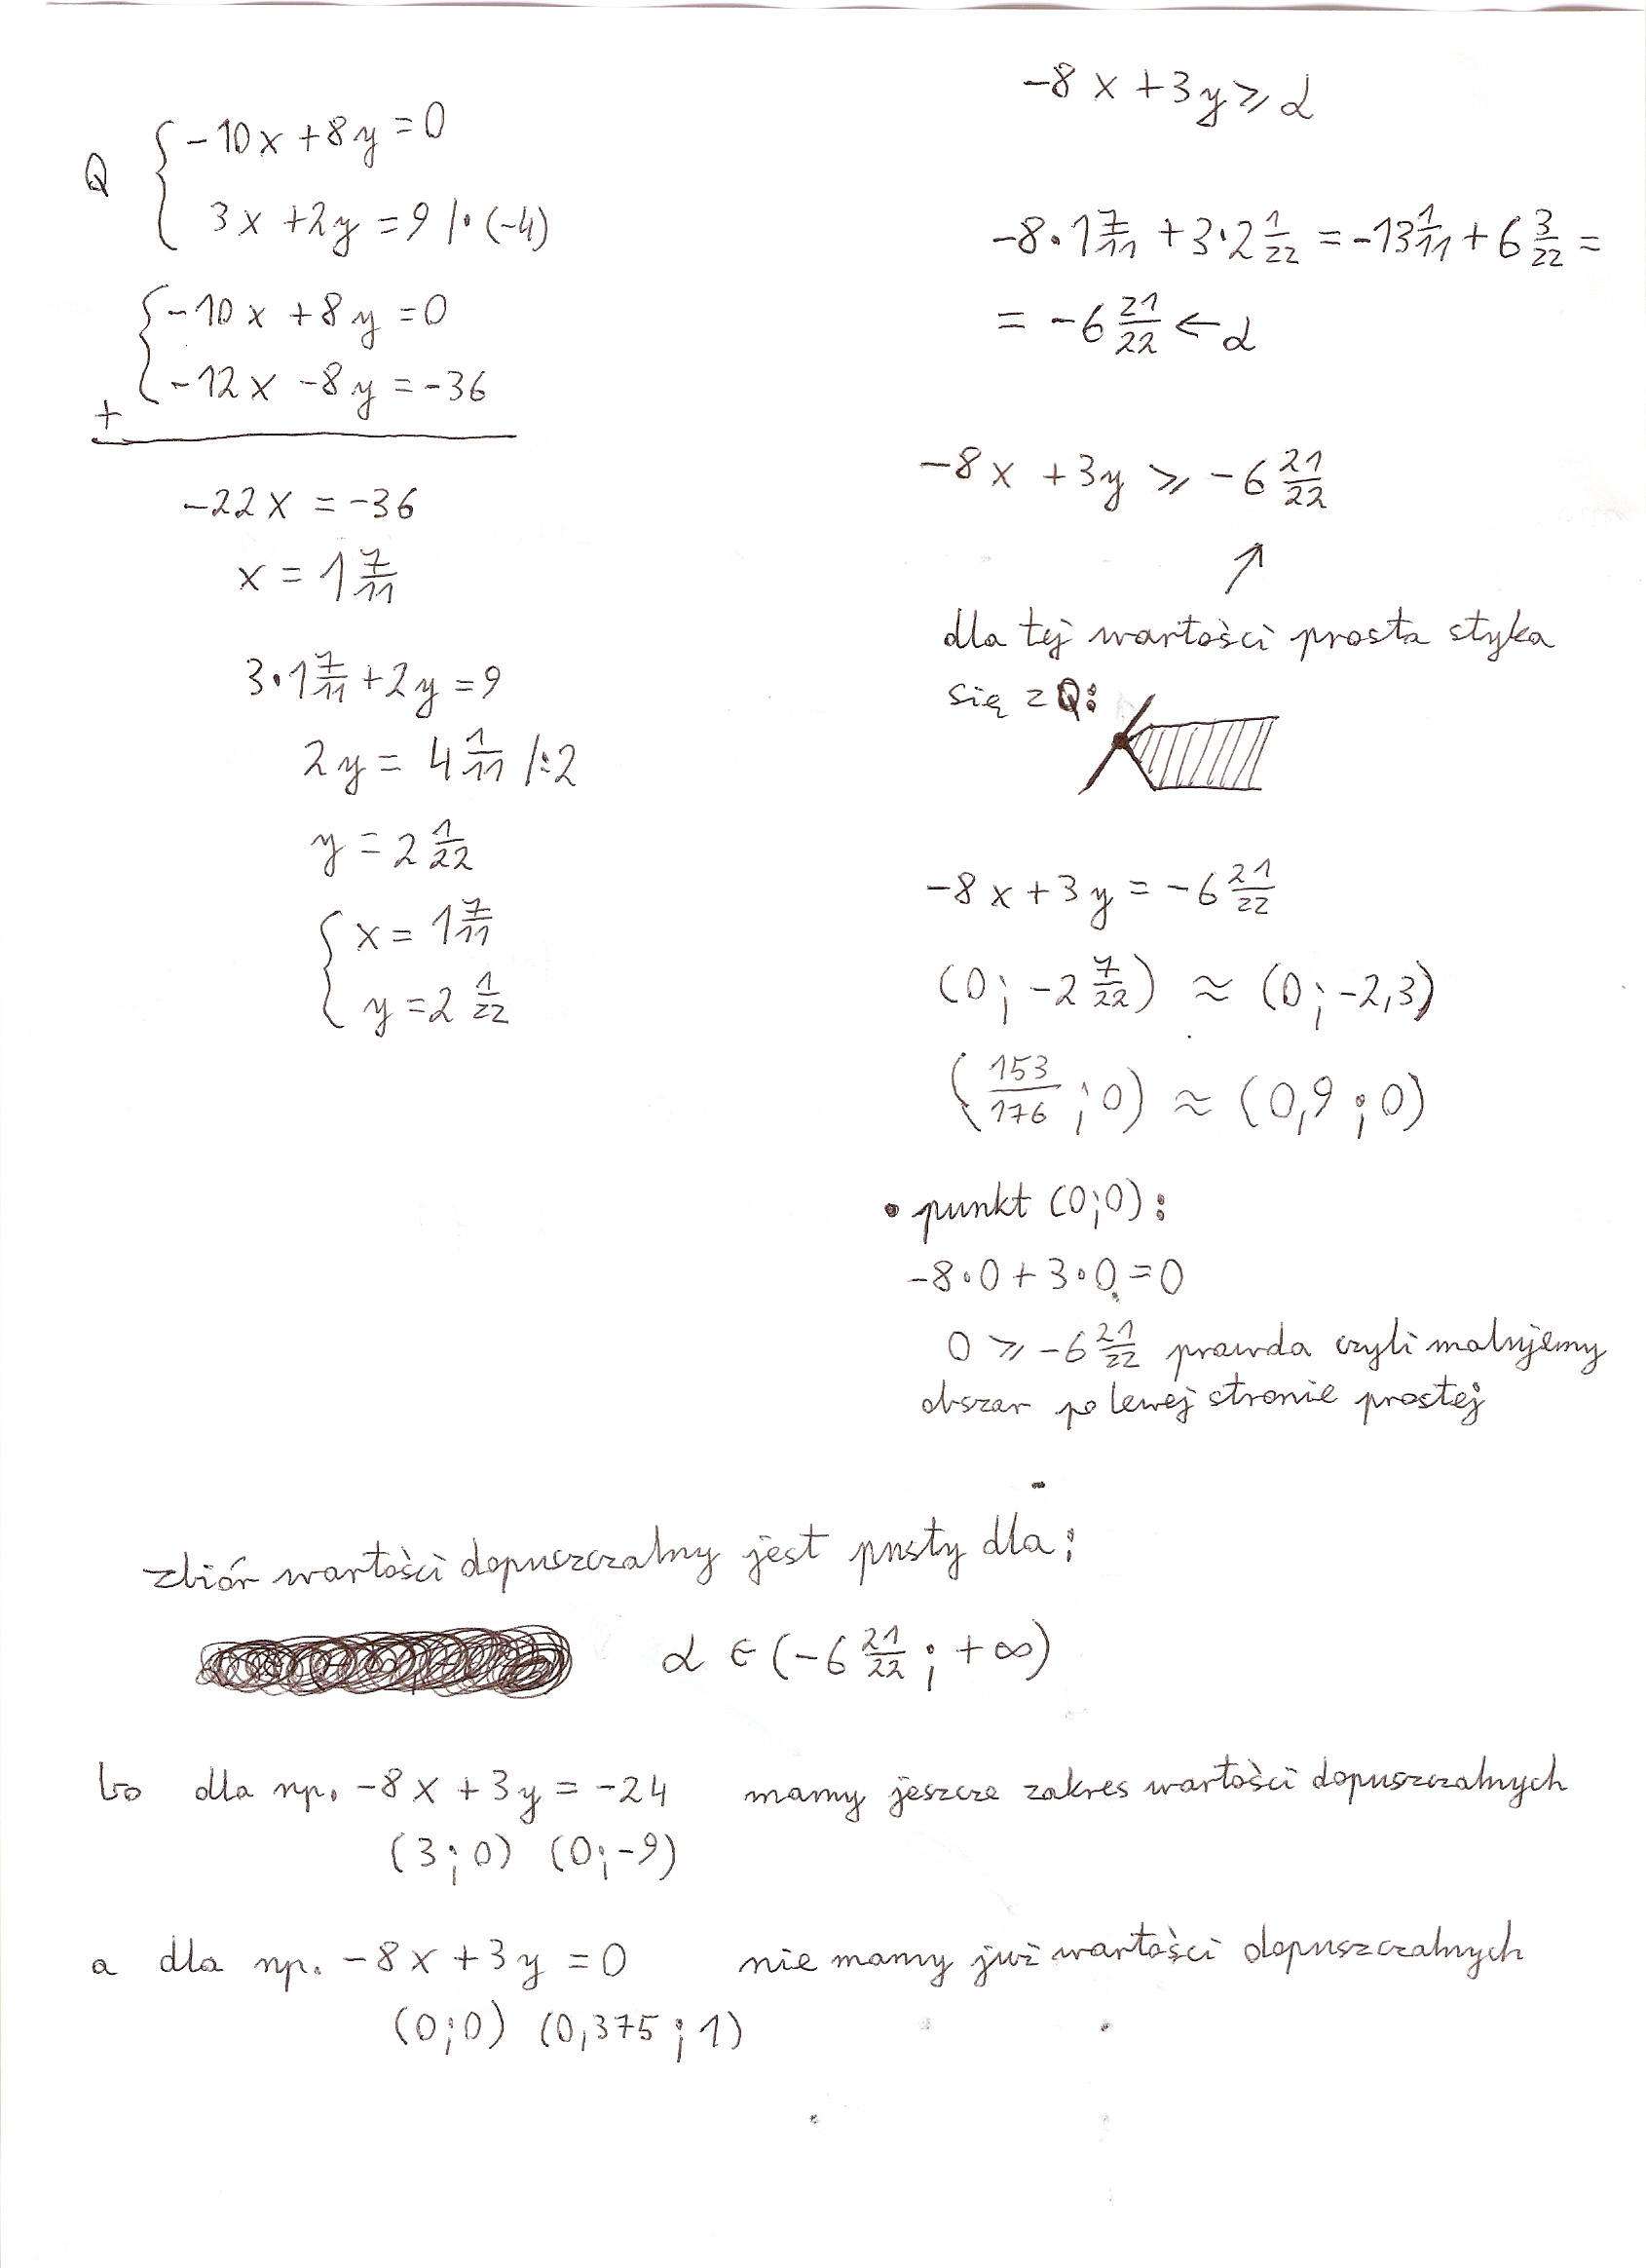 Q { -10x + 8y = 0
3x + 2y = 9 /·(-4)
{ -10x + 8y = 0
-12x - 8y = -36
+
-22x = -36
x = 1 7/11
3·1 7/11 + 2y = 9
2y = 4 1/11 /:2
y = 2 1/22
{ x = 1 7/11
y = 2 1/22
-8x + 3y ⩾ α
-8·1 7/11 + 3·2 1/22 = -13 1/11 + 6 3/22 =
= -6 21/22 ← α
-8x + 3y ⩾ -6 21/22
↗
dla tej wartości prosta styka
się z Q:
-8x + 3y = -6 21/22
(0; -2 7/22) ≈ (0; -2,3)
(153/176; 0) ≈ (0,9; 0)
• punkt (0;0):
-8·0 + 3·0 = 0
0 ⩾ -6 21/22 prawda czyli malujemy
obszar po lewej stronie prostej
zbiór wartości dopuszczalny jest pusty dla:
α ∈ (-6 21/22; +∞)
bo dla np. -8x + 3y = -24 mamy jeszcze zakres wartości dopuszczalnych
(3;0) (0;-9)
a dla np. -8x + 3y = 0 nie mamy już wartości dopuszczalnych
(0;0) (0,375; 1)